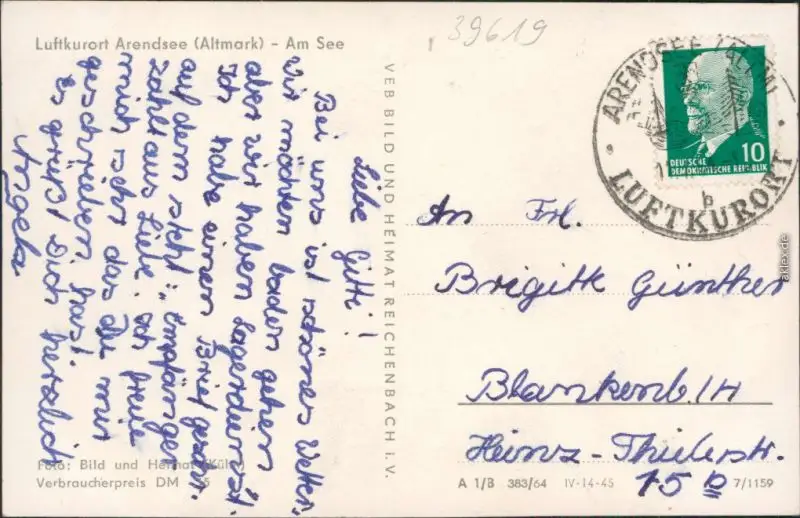 Luftkurort Arendsee (Altmark) - Am See
39619
Liebe Gitti!
Bei uns ist schönes Wetter,
wir möchten baden gehen
aber wir haben Lagerdienst.
Ich habe einen Brief
auf dem steht: "Empfänger
zahlt aus Liebe. Ich freue
mich sehr das du mir
geschrieben hast
Es grüßt Dich herzlich
Angela
VEB BILD UND HEIMAT REICHENBACH I. V.
ARENDSEE (ALTM)
b
LUFTKURORT
10
DEUTSCHE
DEMOKRATISCHE REPUBLIK
An Frl.
Brigitte Günther
Blankenb./H
Heinz-Thielerstr.
15 b
Foto: Bild und Heimat (Kühn)
Verbraucherpreis DM
A 1/B 383/64 IV-14-45 7/1159
aklex.de